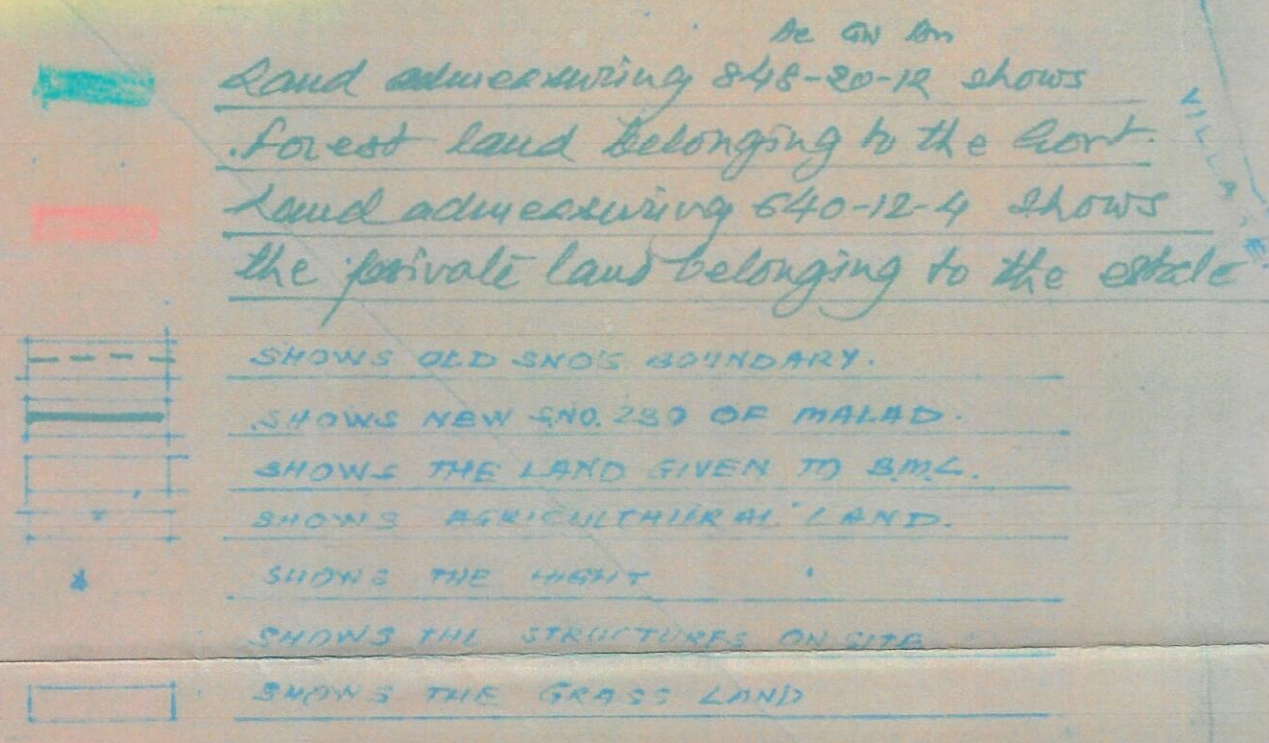 Ac Gu An
Land admeasuring 848-20-12 shows
forest land belonging to the Govt.
Land admeasuring 640-12-4 shows
the private land belonging to the estate
SHOWS OLD SNO'S BOUNDARY.
SHOWS NEW SNO. 239 OF MALAD.
SHOWS THE LAND GIVEN TO B.M.C.
SHOWS AGRICULTHURAL LAND.
SHOWS THE HIGHT
SHOWS THE STRUCTURES ON SITE
SHOWS THE GRASS LAND
VILLAGE